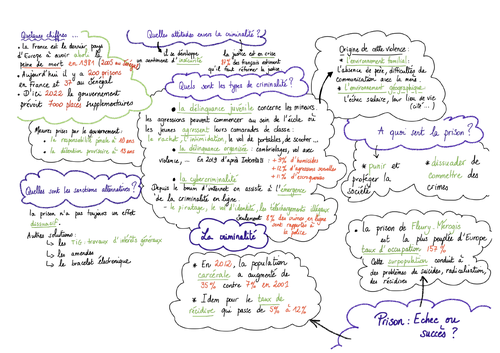 Quelques chiffres ...
• La France est le dernier pays
d'Europe à avoir aboli la
peine de mort en 1981
• Aujourd'hui il y a 200 prisons
en France et 37 au Sénégal
• D'ici 2022 le gouvernement
prévoit 7000 places supplémentaires
Quelles attitudes envers la criminalité ?
il se développe
un sentiment d'insécurité
la justice est en crise
des français estiment
qu'il faut réformer la justice
Quels sont les types de criminalité ?
• la délinquance juvénile concerne les mineurs.
les agressions peuvent commencer au sein de l'école où
les jeunes agressent leurs camarades de classe :
le racket, l'intimidation, le vol de portables, de scooter ...
• la délinquance organisée : cambriolages, vol avec
violence, ... En 2019 d'après Interstats : + 9% d'homicides
+ 12% d'agressions sexuelles
+ 11% d'escroqueries
• la cybercriminalité
Depuis le boum d'internet on assiste à l'émergence
de la criminalité en ligne :
le piratage, le vol d'identité, les téléchargements illégaux
seulement 8% des crimes en ligne
sont rapportés à
la police
Origine de cette violence :
• l'environnement familial :
l'absence de père, difficultés de
communication avec la mère ...
• l'environnement géographique :
l'échec scolaire, leur lieu de vie
(cité ...)
Mesures prises par le gouvernement :
• la responsabilité pénale à 18 ans
• la détention provisoire à 13 ans
Quelles sont les sanctions alternatives ?
la prison n'a pas toujours un effet
dissuasif
Autres solutions :
↳ les TIG : travaux d'intérêts généraux
↳ les amendes
↳ le bracelet électronique
La criminalité
* En 2012, la population
carcérale a augmenté de
35% contre 7% en 2001
* Idem pour le taux de
récidive qui passe de 5% à 12%
A quoi sert la prison ?
* punir et
protéger la
société
* dissuader de
commettre des
crimes
• la prison de Fleury-Mérogis
est la plus peuplée d'Europe
taux d'occupation 157%
Cette surpopulation conduit à
des problèmes de suicides, radicalisation,
des récidives
Prison : Echec ou
succès ?